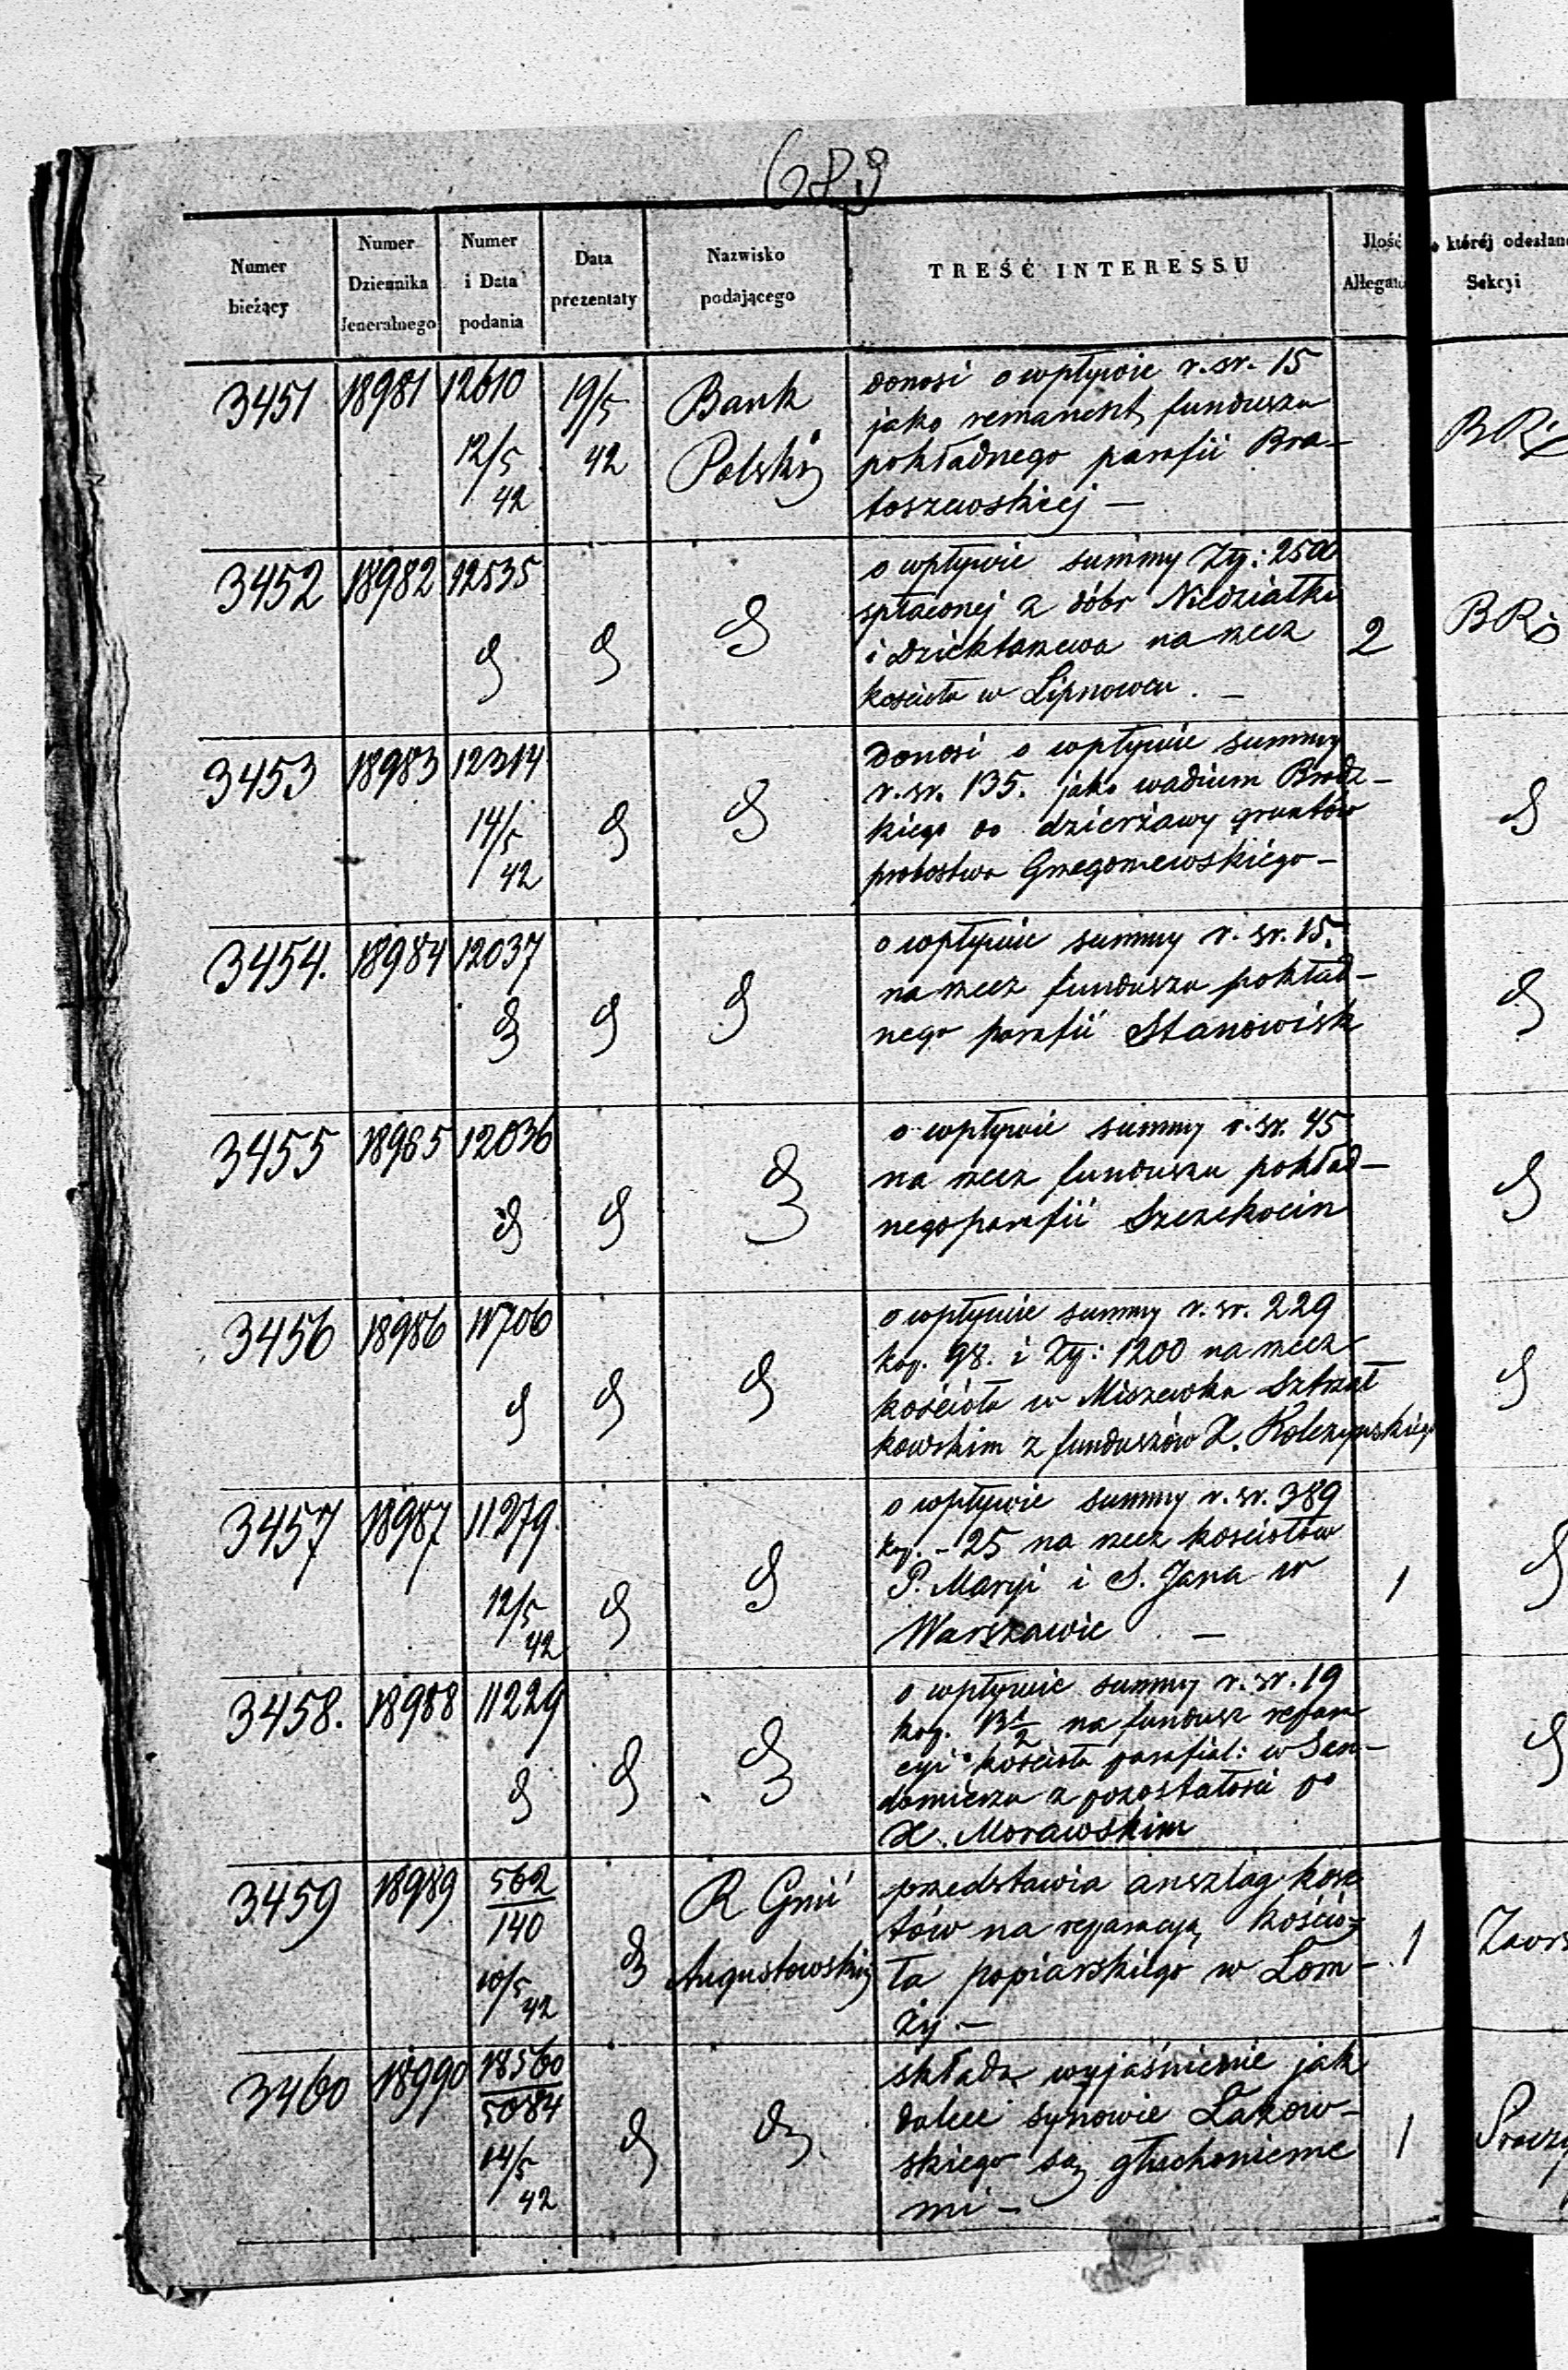 683
Numer bieżący
Numer Dziennika Jeneralnego
Numer i Data podania
Data prezentaty
Nazwisko podającego
TREŚĆ INTERESSU
Ilość Allegató
któréj odesłan
Sekcyi
3451 18981 12610 12/5 42 19/5 42 Bank Polski
donosi o wpływie r. sr. 15
jako remanent funduszu
pokładnego parafii Bra-
toszewskiej —
BR
3452 18982 12535 d d d
o wpływie summy Złp: 2500
spłaconej z dóbr Niedziałki
i Dziektarzewa na rzecz
kościoła w Lipnowcu. —
2 BR
3453 18983 12314 14/5 42 d d
donosi o wpływie summy
r. sr. 135. jako wadium Brodz-
kiego do dzierżawy gruntów
probostwa Grzegorzewskiego —
d
3454. 18984 12037 d d d
o wpływie summy r. sr. 15.
na rzecz funduszu pokład-
nego parafii Stanowisk
d
3455 18985 12036 d d d
o wpływie summy r. sr. 45
na rzecz funduszu pokład-
nego parafii Szczekocin
d
3456 18986 11706 d d d
o wpływie summy r. sr. 229
kop. 98. i Złp: 1200 na rzecz
kościoła w Miszewku Sztrzał
kowskim z funduszów X. Kolczyńskiego
d
3457 18987 11279. 12/5 42 d d
o wpływie summy r. sr. 389
kop. - 25 na rzecz kościołów
P. Maryi i S. Jana w
Warszawie —
1 d
3458. 18988 11229 d d d
o wpływie summy r. sr. 19
kop. 13 1/2 na fundusz repara
cyi kościoła parafial: w San-
domierzu z pozostałości po
X. Morawskim
d
3459 18989 562/140 10/5 42 d R Gnii Augustowski
przedstawia anszlag kosz
tów na reparacyą kościo-
ła popiarskiego w Łom-
ży. —
1
3460 18990 18560/5084 14/5 42 d d
składa wyjaśnienie jak
dalece synowie
skiego są głuchonieme
mi —
1